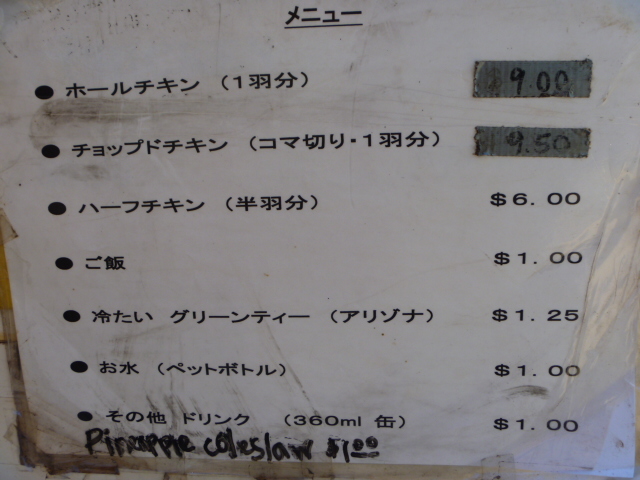 メニュー
● ホールチキン （1羽分） 9.00
● チョップドチキン （コマ切り・1羽分） 9.50
● ハーフチキン （半羽分） $6.00
● ご飯 $1.00
● 冷たい グリーンティー （アリゾナ） $1.25
● お水 （ペットボトル） $1.00
● その他 ドリンク （360ml 缶） $1.00
Pineapple coleslaw $1.00